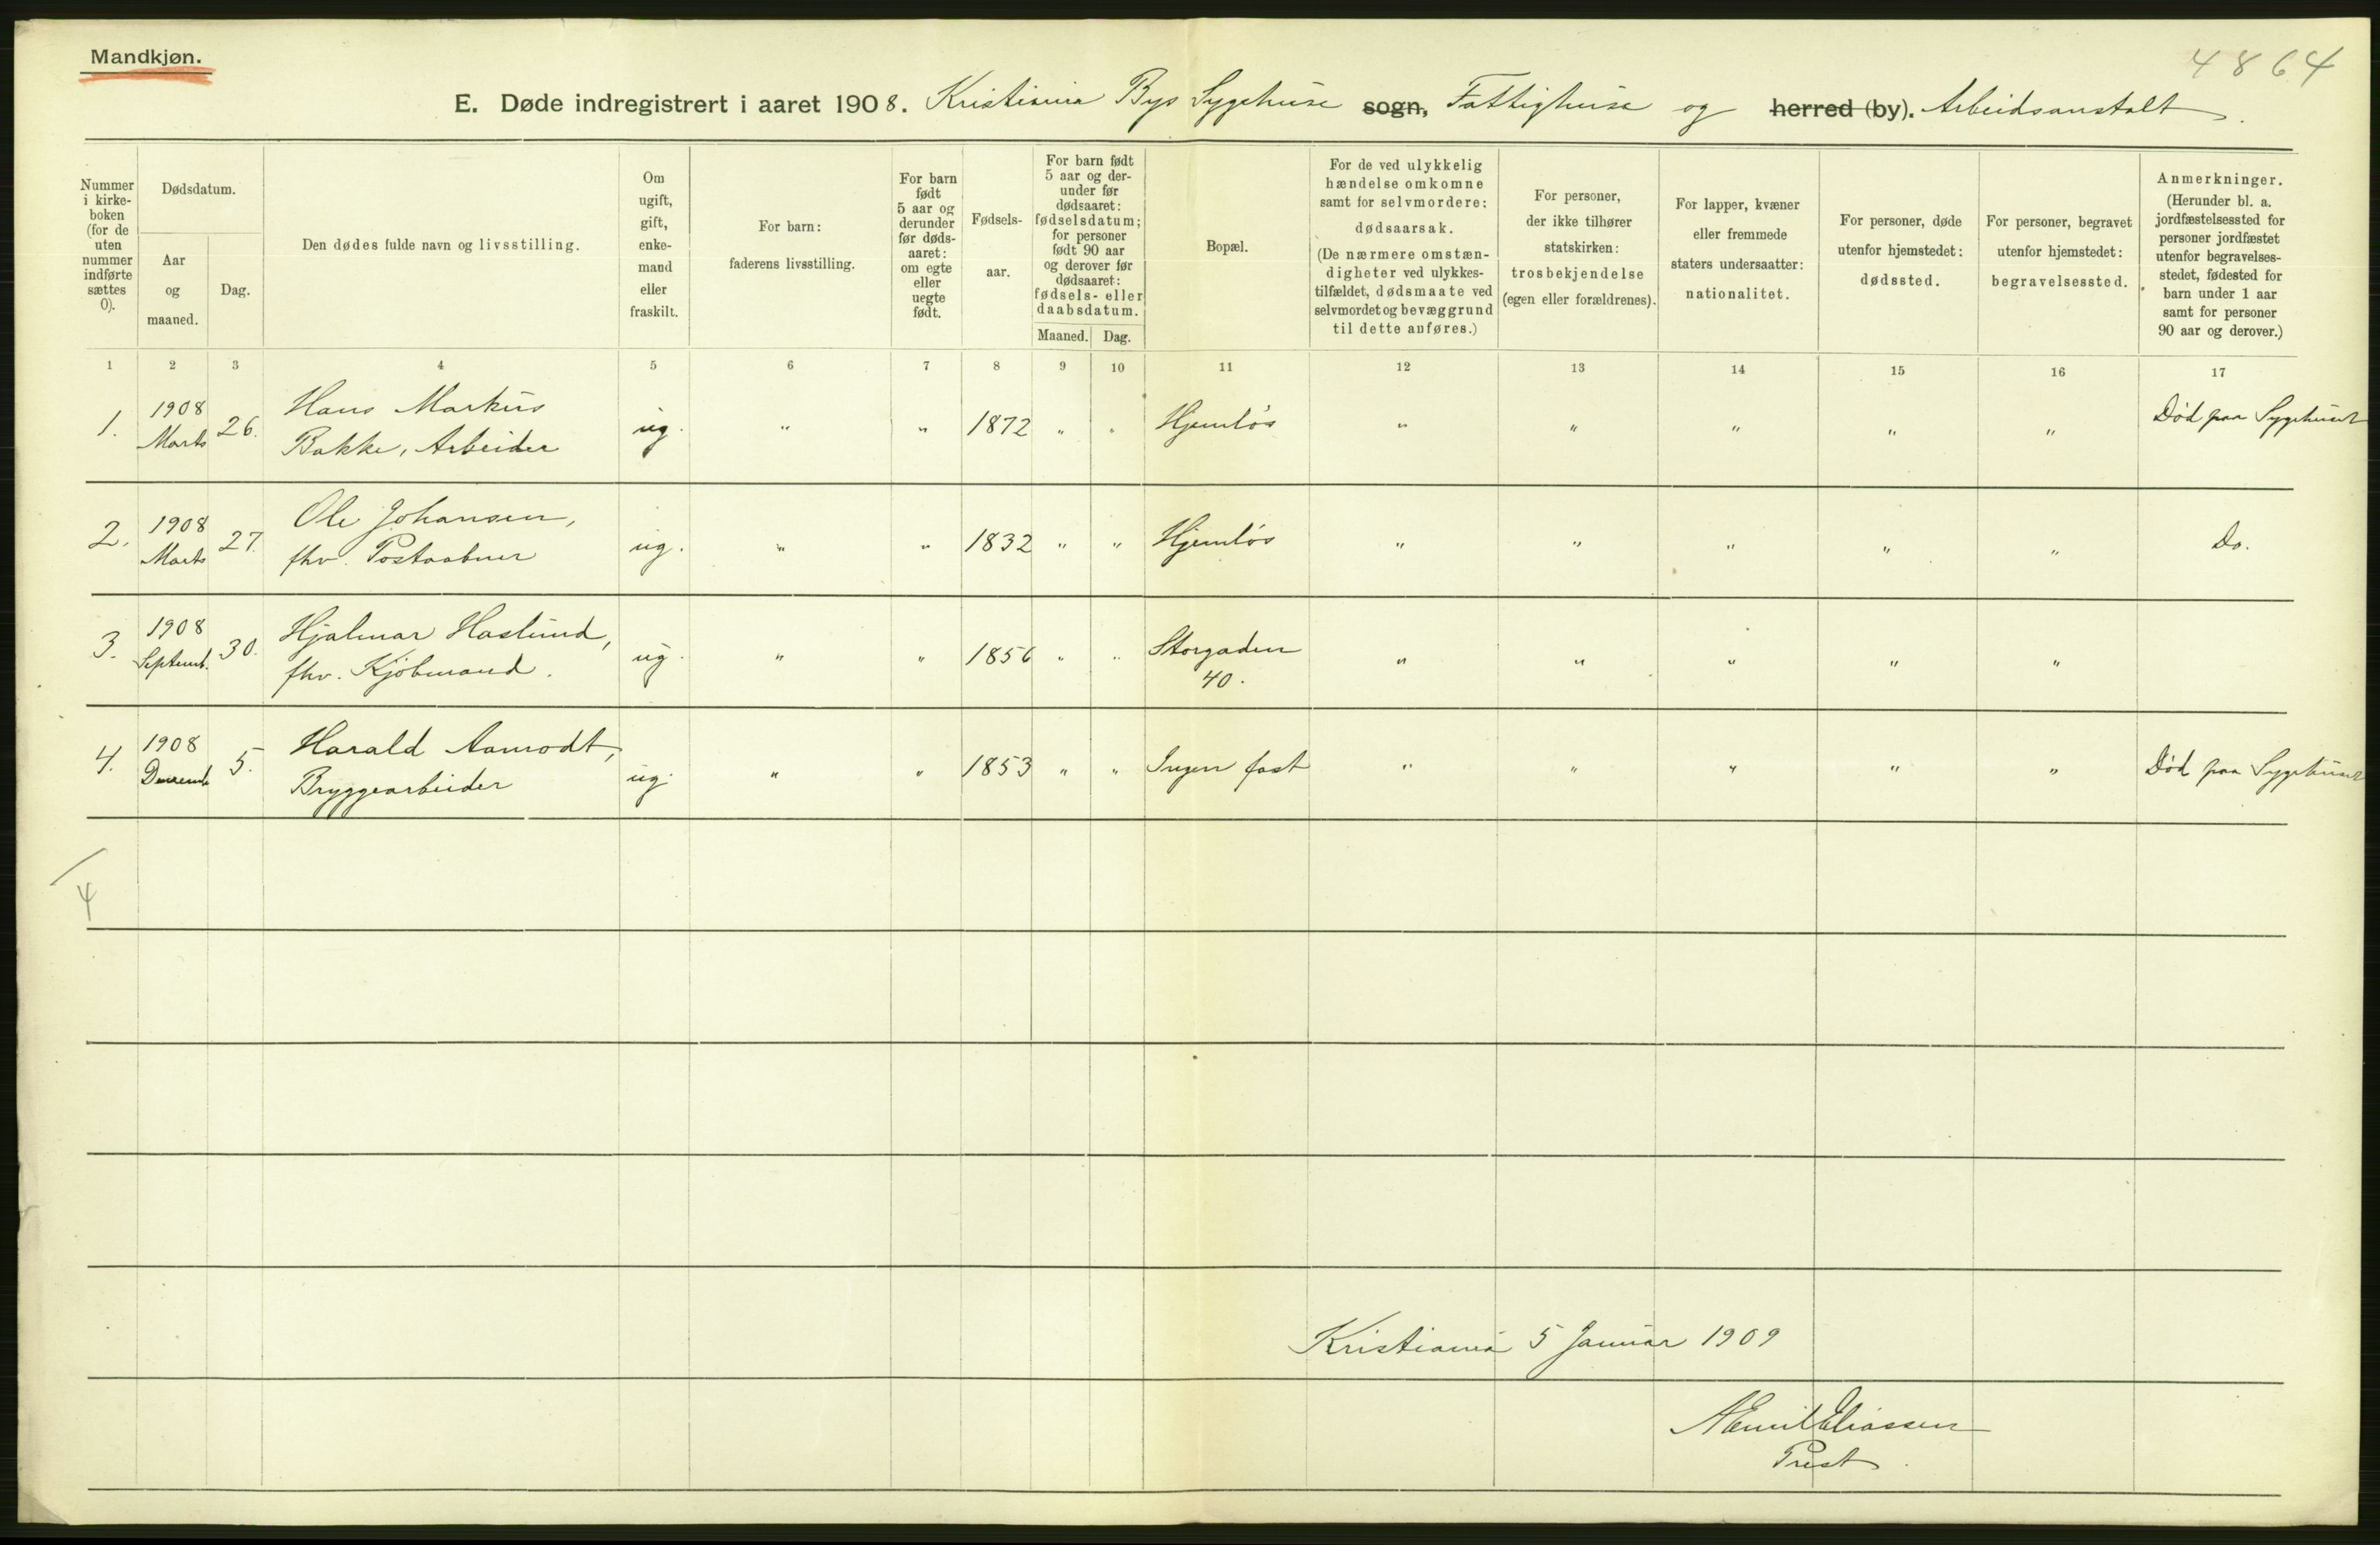 Mandkjøn.
4864
E. Døde indregistrert i aaret 1908. Kristiania Bys Sygehuse sogn, Fattighuse og herred (by). Arbeidsanstalt.
Nummer
i kirke-
boken
(for de
uten
nummer
indførte
sættes
0).
Dødsdatum.
Aar
og
maaned.
Dag.
Den dødes fulde navn og livsstilling.
Om
ugift,
gift,
enke-
mand
eller
fraskilt.
For barn:
faderens livsstilling.
For barn
født
5 aar og
derunder
før døds-
aaret:
om egte
eller
uegte
født.
Fødsels-
aar.
For barn født
5 aar og der-
under før
dødsaaret:
fødselsdatum;
for personer
født 90 aar
og derover før
dødsaaret:
fødsels- eller
daabsdatum.
Maaned. Dag.
Bopæl.
For de ved ulykkelig
hændelse omkomne
samt for selvmordere:
dødsaarsak.
(De nærmere omstæn-
digheter ved ulykkes-
tilfældet, dødsmaate ved
selvmordet og bevæggrund
til dette anføres.)
For personer,
der ikke tilhører
statskirken:
trosbekjendelse
(egen eller forældrenes).
For lapper, kvæner
eller fremmede
staters undersaatter:
nationalitet.
For personer, døde
utenfor hjemstedet:
dødssted.
For personer, begravet
utenfor hjemstedet:
begravelsessted.
Anmerkninger.
(Herunder bl. a.
jordfæstelsessted for
personer jordfæstet
utenfor begravelses-
stedet, fødested for
barn under 1 aar
samt for personer
90 aar og derover.)
1 2 3 4 5 6 7 8 9 10 11 12 13 14 15 16 17
1. 1908 Marts 26. Hans Markus
Bakke, Arbeider ug. " " 1872 " " Hjemløs " " " " " Død paa Sygehuset
2. 1908 Marts 27. Ole Johansen,
fhv. Postaabner ug. " " 1832 " " Hjemløs " " " " " Do.
3. 1908 Septemb. 30. Hjalmar Haslund,
fhv. Kjøbmand. ug. " " 1856 " " Storgaden
40. " " " " "
4. 1908 Decemb 5. Harald Aamodt,
Bryggearbeider ug. " " 1853 " " Ingen fast " " " " " Død paa Sygehuset
4
Kristiania 5 Januar 1909
A Emil Eliassen
Prest.